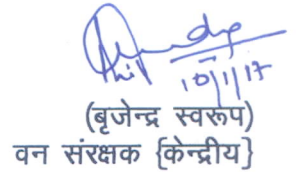 10/1/17
(बृजेन्द्र स्वरूप)
वन संरक्षक {केन्द्रीय}